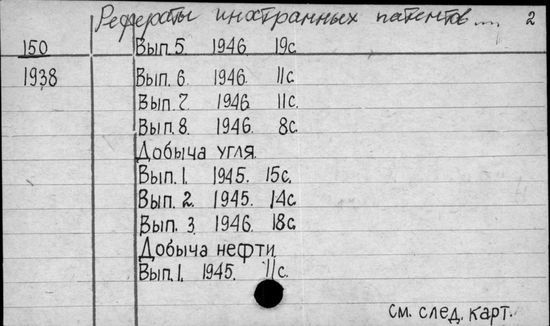 Рефераты иностранных патентов... 2
150 Вып. 5 1946 19с.
1938 Вып. 6 1946. 11с.
Вып. 7 1946. 11с.
Вып. 8. 1946. 8с.
Добыча угля.
Вып. 1. 1945. 15с.
Вып. 2. 1945. 14с.
Вып. 3 1946. 18с.
Добыча нефти.
Вып. 1. 1945. 11с.
См. след. карт.